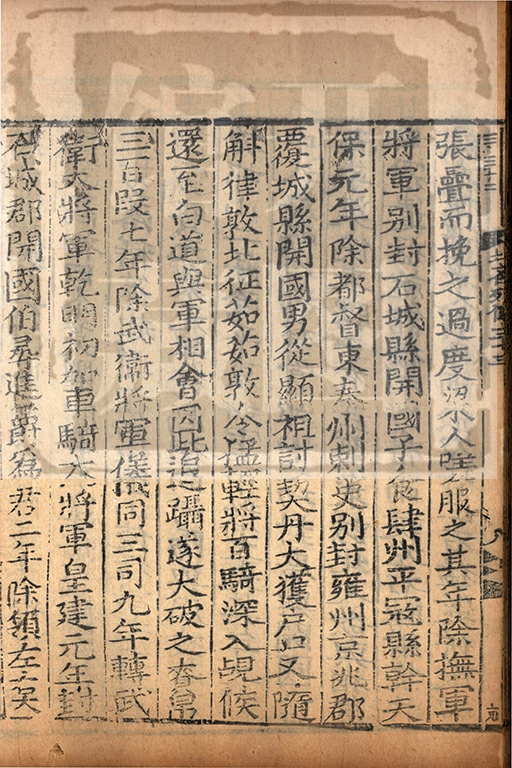 北齊列傳三十三
張疊而挽之過度梁人嗟服之其年除撫軍
將軍別封石城縣開國子食肆州平寇縣幹天
保元年除都督東秦州刺史別封雍州京兆郡
覆城縣開國男從顯祖討契丹大獲戶口又隨
斛律敦北征茹茹敦令猛輕將百騎深入覘候
還至白道與軍相會因此追躡遂大破之賚帛
三百段七年除武衛將軍儀同三司九年轉武
衛大將軍乾明初加車騎大將軍皇建元年封
石城郡開國伯尋進爵為君二年除領左右吳